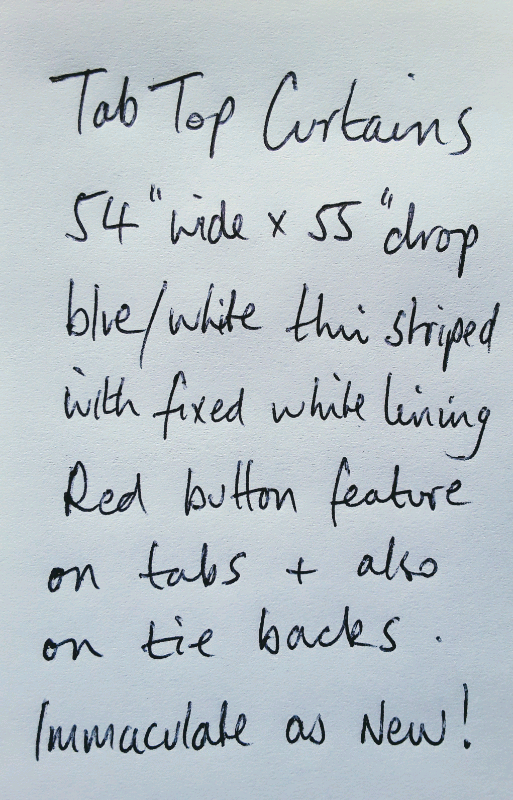 Tab Top Curtains
54" wide x 55" drop
blue/white thin striped
with fixed white lining
Red button feature
on tabs + also
on tie backs.
Immaculate as New!